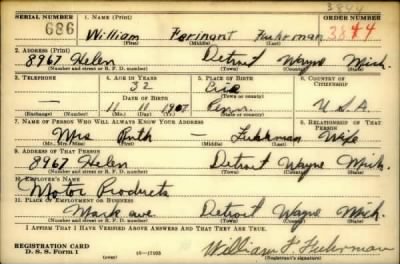 SERIAL NUMBER 1. NAME (Print) 3844 ORDER NUMBER
686 William Ferinant Fuhrman 3844
(First) (Middle) (Last)
2. ADDRESS (Print)
8967 Helen Detroit Wayne Mich.
(Number and street or R. F. D. number) (Town) (County) (State)
3. TELEPHONE 4. AGE IN YEARS 5. PLACE OF BIRTH 6. COUNTRY OF CITIZENSHIP
32 Erie
DATE OF BIRTH (Town or county)
— 11 11 1907 Penn. U.S.A.
(Exchange) (Number) (Mo.) (Day) (Yr.) (State or country)
7. NAME OF PERSON WHO WILL ALWAYS KNOW YOUR ADDRESS 8. RELATIONSHIP OF THAT PERSON
Mrs Ruth — Fuhrman Wife
(Mr., Mrs., Miss) (First) (Middle) (Last)
9. ADDRESS OF THAT PERSON
8967 Helen Detroit Wayne Mich.
(Number and street or R. F. D. number) (Town) (County) (State)
10. EMPLOYER'S NAME
Motor Products
11. PLACE OF EMPLOYMENT OR BUSINESS
Mack ave. Detroit Wayne Mich.
(Number and street or R. F. D. number) (Town) (County) (State)
I AFFIRM THAT I HAVE VERIFIED ABOVE ANSWERS AND THAT THEY ARE TRUE.
REGISTRATION CARD William F Fuhrman
D. S. S. Form 1 (over) 16—17105 (Registrant's signature)